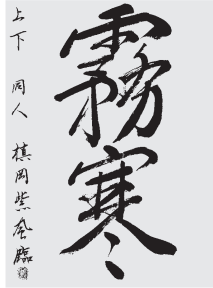 霧寒
上下 同人 槙岡紫風臨